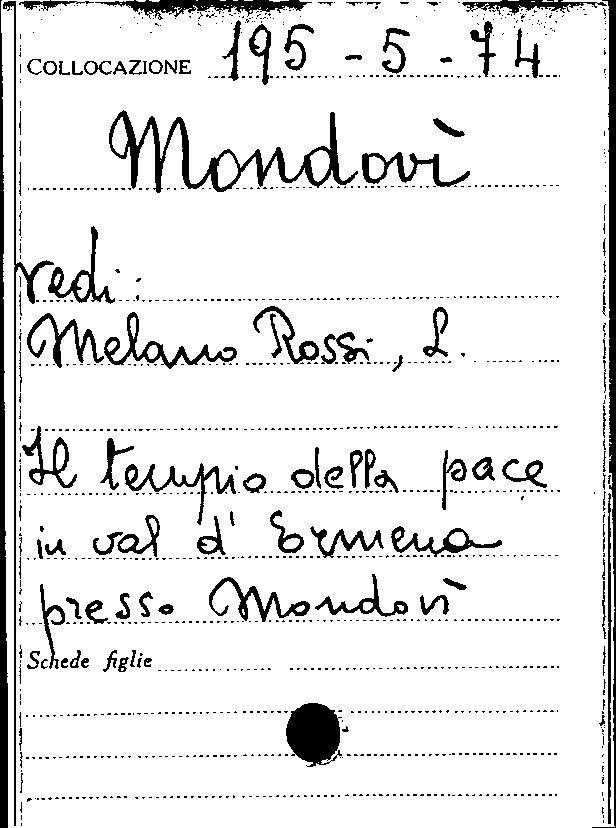 COLLOCAZIONE 195 - 5 - 74
Mondovì
vedi:
Melano Rossi, L.
Il tempio della pace
in val d' Ermena
presso Mondovì
Schede figlie